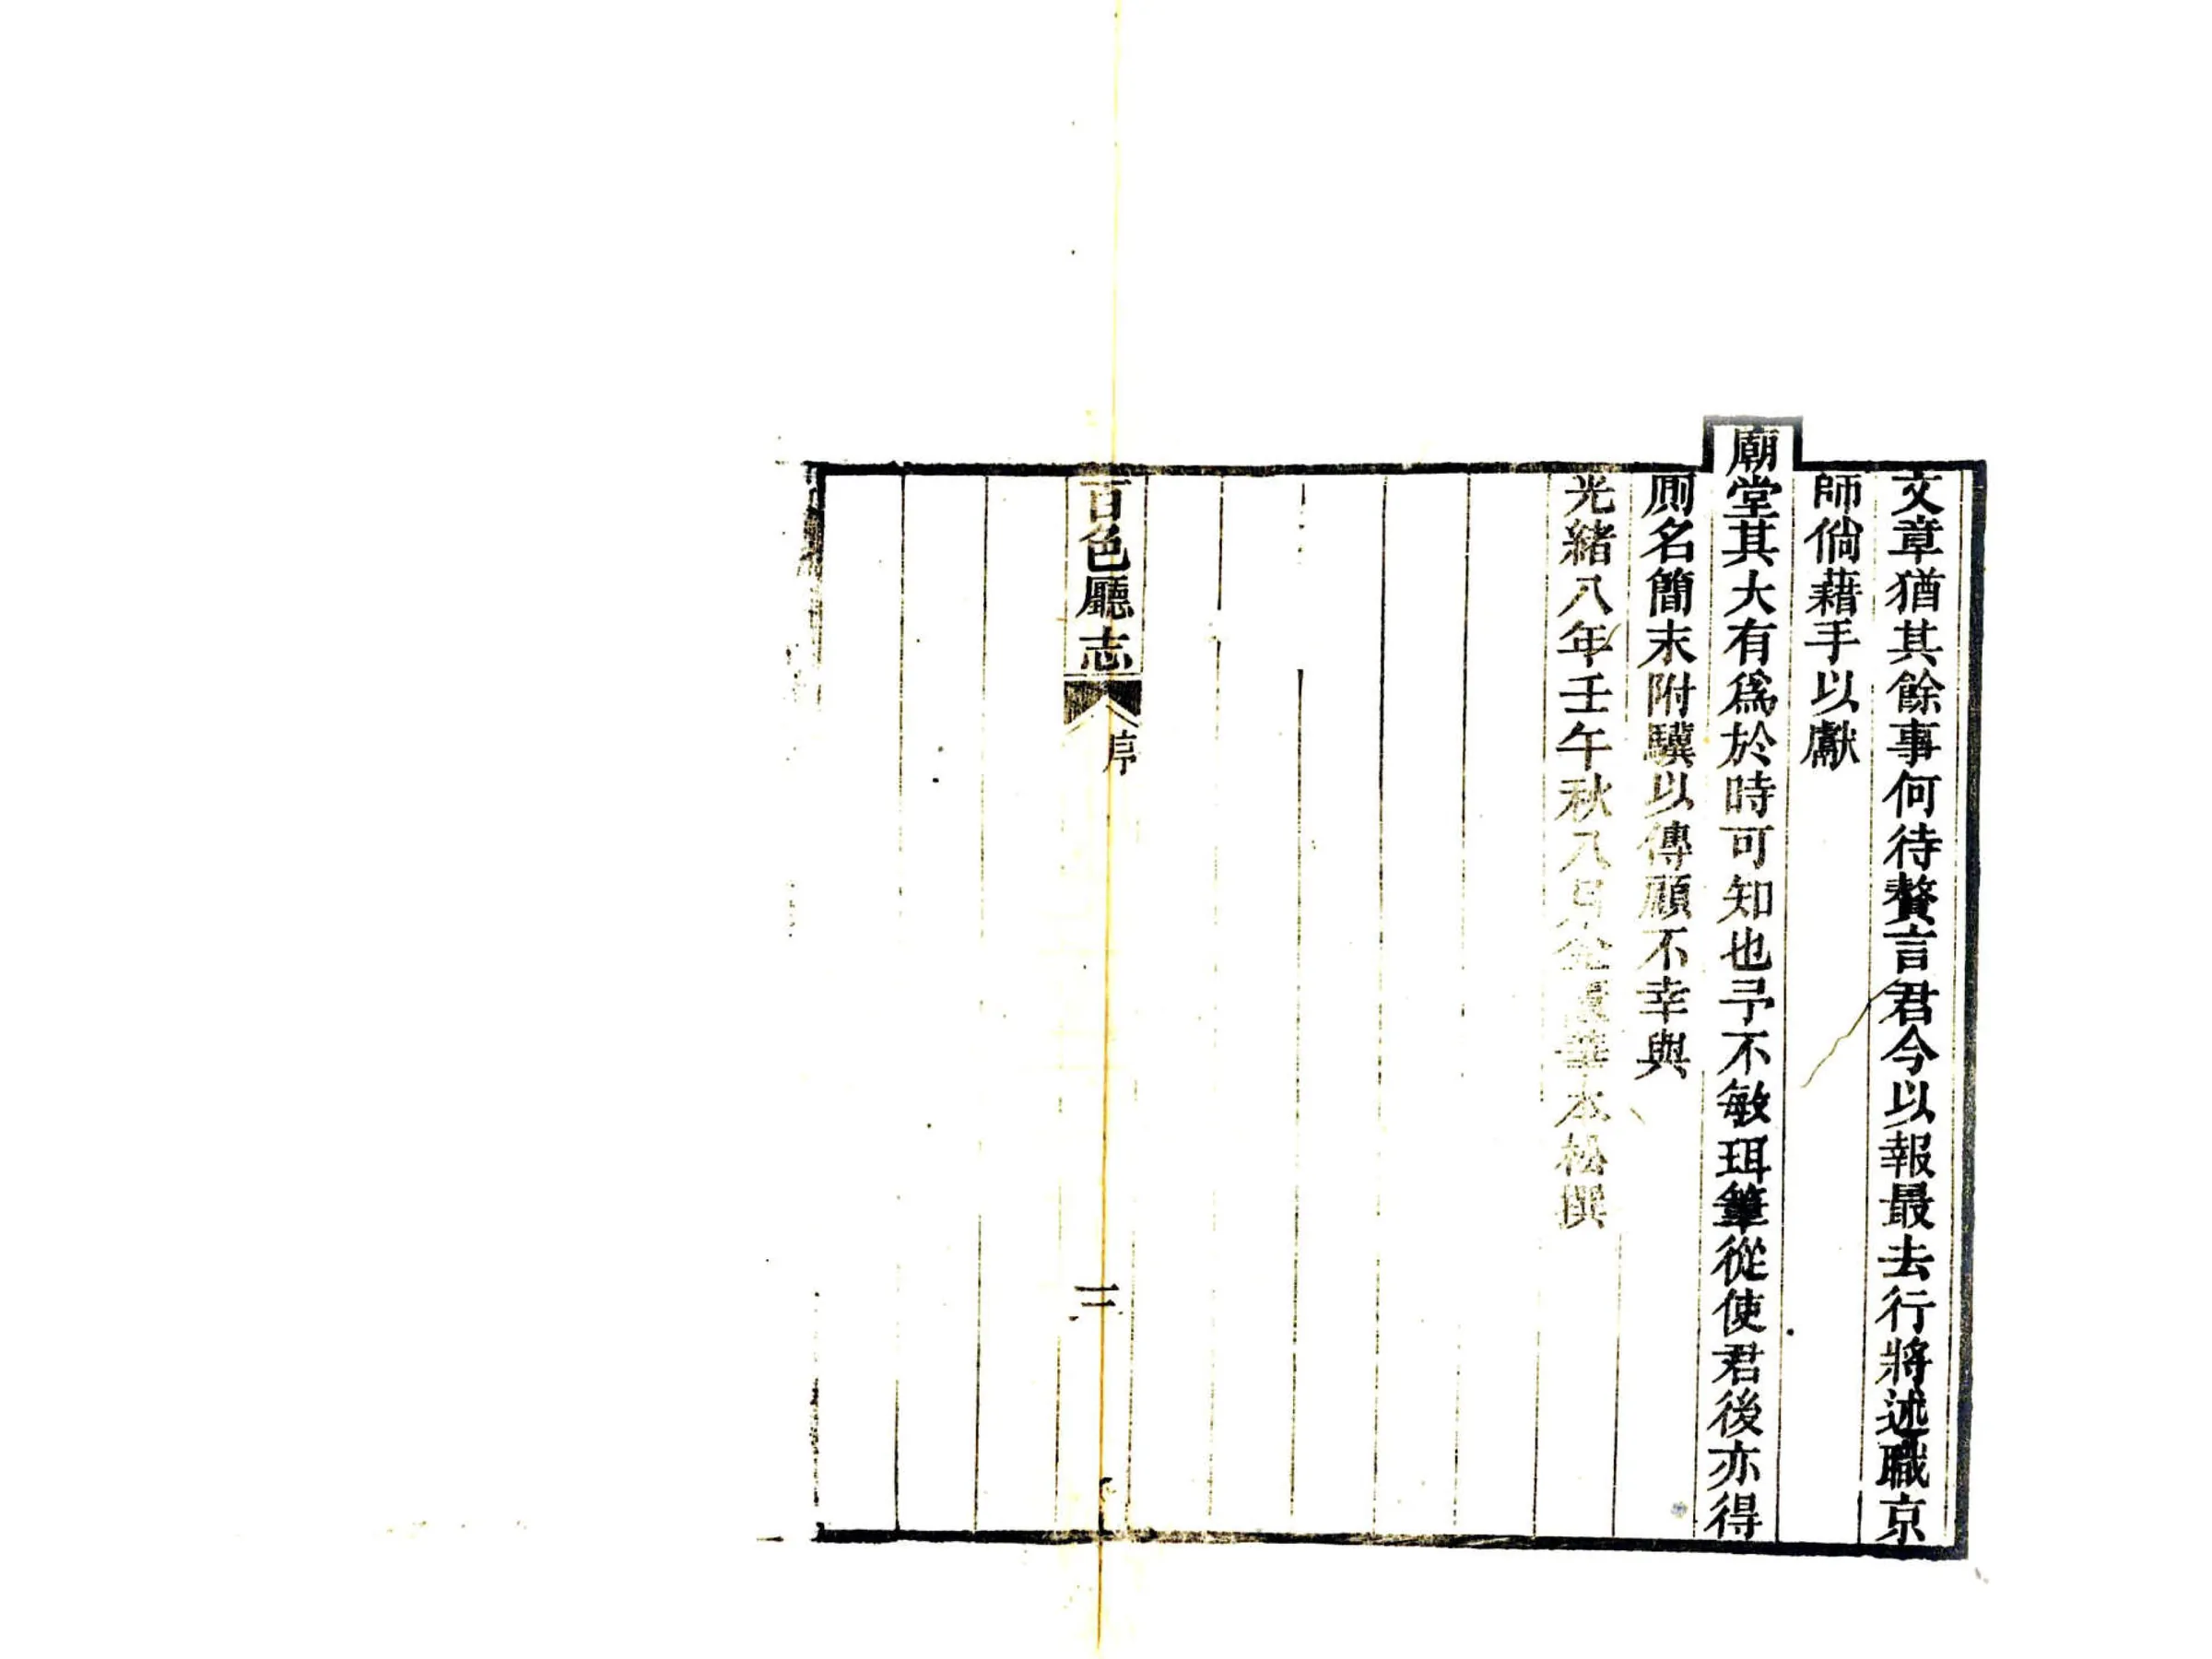 文章猶其餘事何待贅言君今以報最去行將述職京
師倘藉手以獻
廟堂其大有爲於時可知也予不敏珥筆從使君後亦得
厠名簡末附驥以傳顧不幸與
光緒八年壬午秋八月全華本松撰
百色廳志
序
三